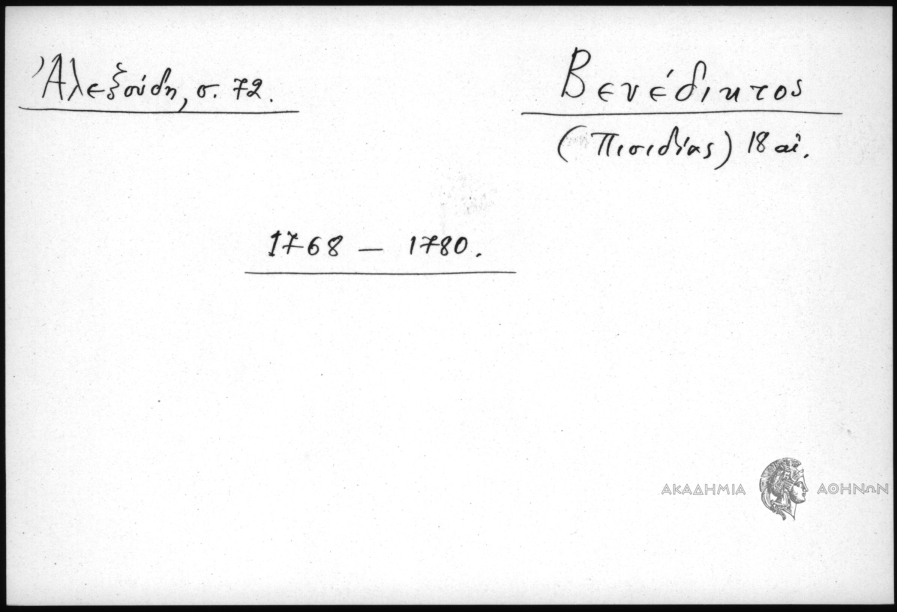 Ἀλεξούδη, σ. 72.
Βενέδικτος
(Πισιδίας) 18 αἰ.
1768 — 1780.
ΑΚΑΔΗΜΙΑ ΑΘΗΝΩΝ